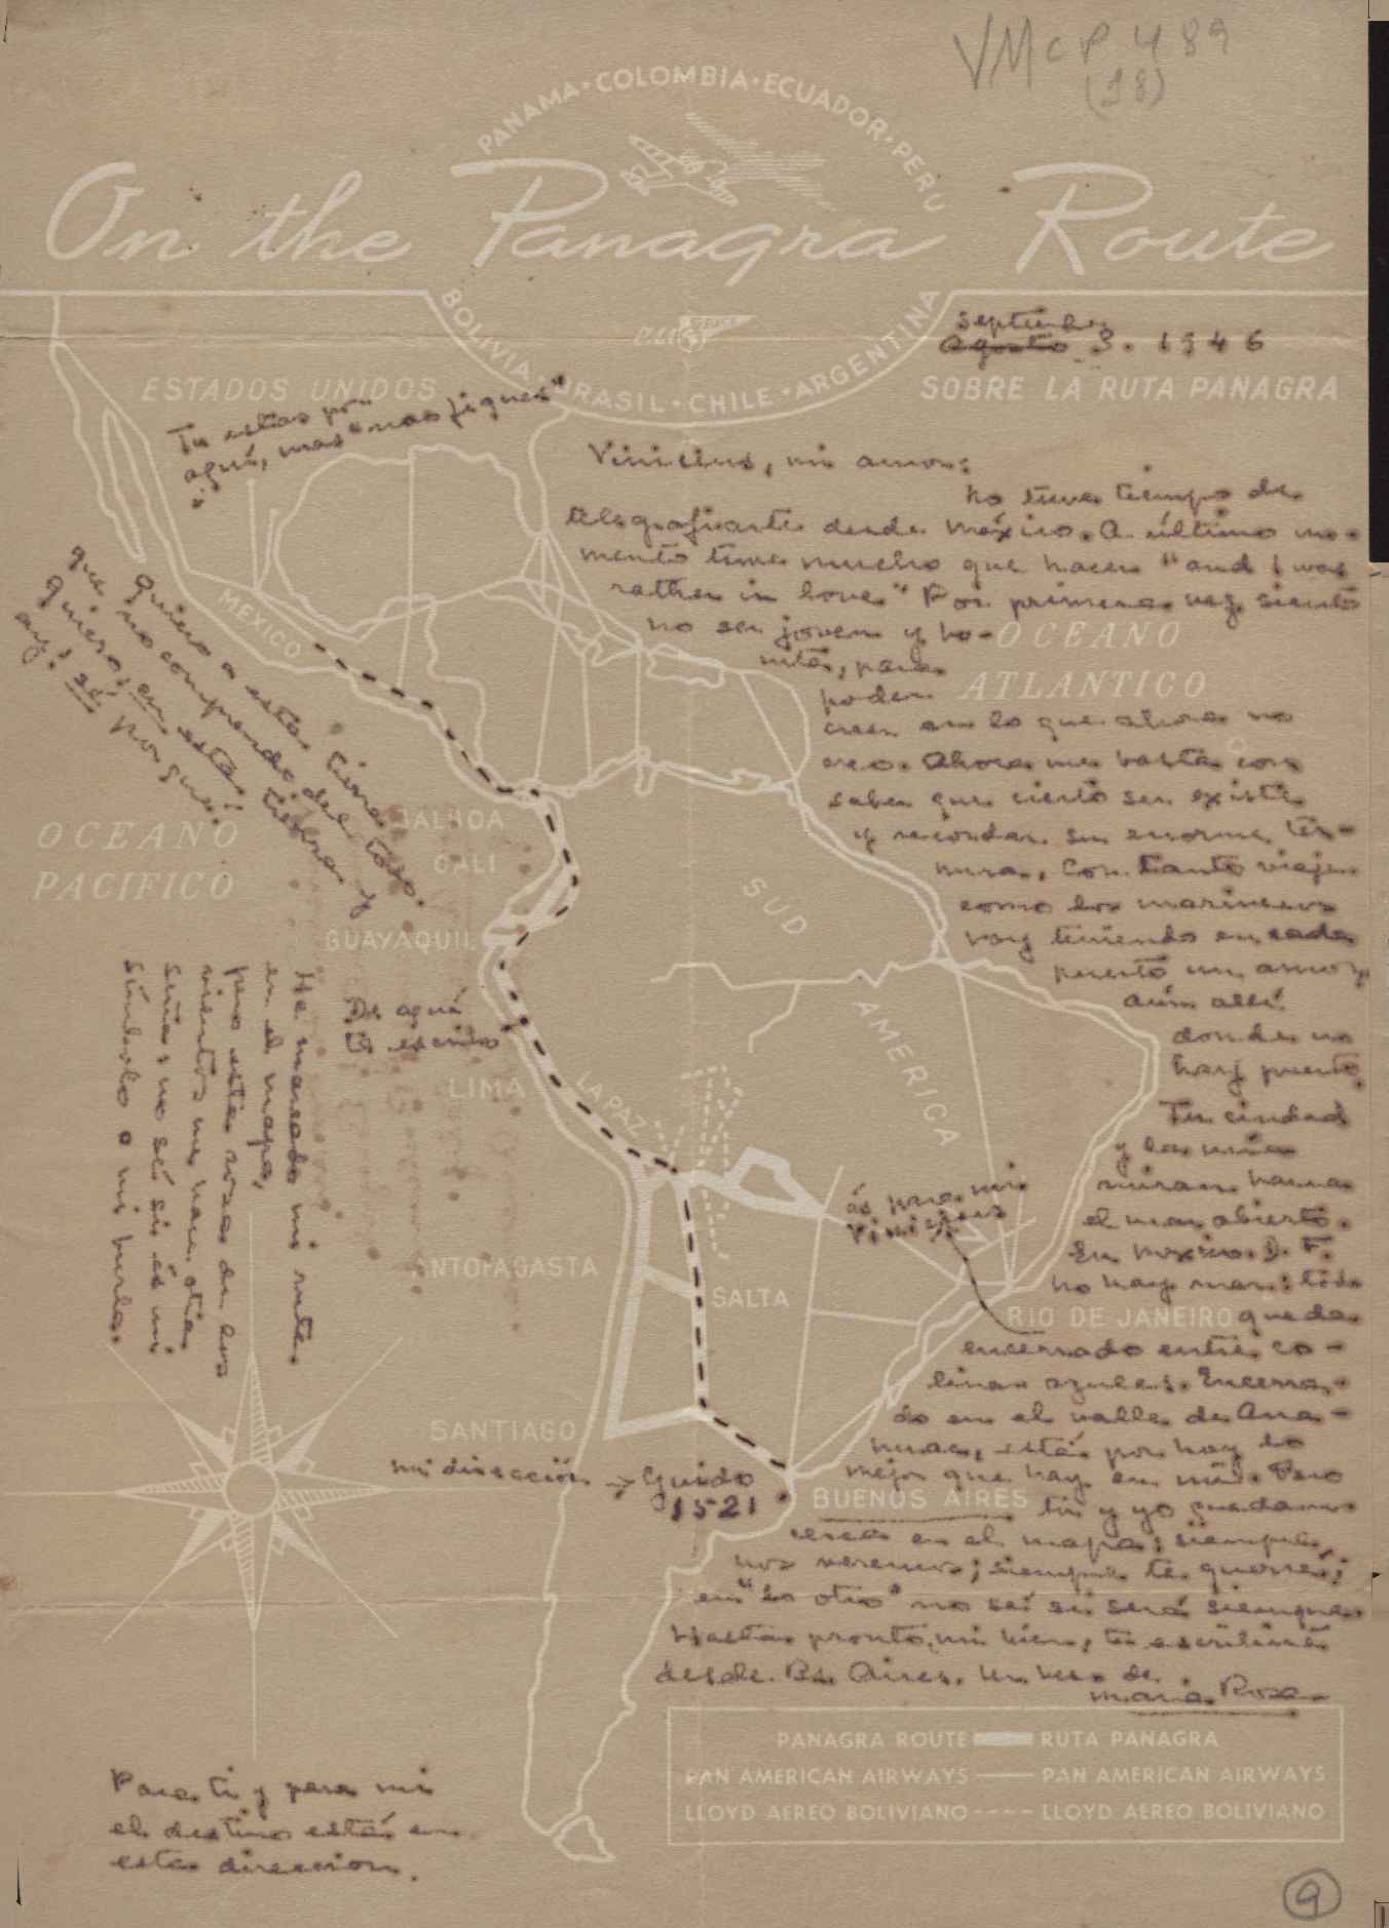 VMcP 489
(18)
PANAMA · COLOMBIA · ECUADOR · PERU
On the Panagra Route
BOLIVIA · BRASIL · CHILE · ARGENTINA
Septiembre
Agosto 3. 1946
ESTADOS UNIDOS
SOBRE LA RUTA PANAGRA
Tu estás por
aquí, mas "nao fiques"
Vinicius, mi amor:
no tuve tiempo de
telegrafiarte desde México. A último mo-
mento tuve mucho que hacer "and I was
rather in love" Por primera vez siento
no ser joven y bo-
nita, para
poder
creer en lo que ahora no
creo. Ahora me basta con
saber que cierto ser existe
y recordar su enorme ter-
nura. Con tanto viaje
como los marineros
voy teniendo en cada
puerto un amor y
aún allí
donde no
hay puerto.
Tu ciudad
y la mía
miran hacia
el mar abierto.
En México. D. F.
no hay mar: todo
queda
encerrado entre co-
linas azules. Encerra-
do en el valle de Ana-
huac, está por hoy lo
mejor que hay en mí. Pero
tú y yo quedamos
cerca en el mapa; siempre
nos veremos; siempre te querré;
en "lo otro" no sé si será siempre
Hasta pronto, mi bien, te escribiré
desde Bs Aires. Un beso de
María Rosa
Quiero a esta tierra
que no comprendo del todo.
Quiero, en esta tierra y
ay! sé por qué.
MEXICO
OCEANO
ATLANTICO
OCEANO
PACIFICO
BALBOA
CALI
GUAYAQUIL
De aquí
te escribo
LIMA
LA PAZ
SUD
AMERICA
He marcado mi ruta
en el mapa,
pero esta rosa de los
vientos me hace otra
seña; no sé si es mi
símbolo o mi burla.
ANTOFAGASTA
SALTA
RIO DE JANEIRO
SANTIAGO
mi dirección → Guido
1521
BUENOS AIRES
PANAGRA ROUTE RUTA PANAGRA
PAN AMERICAN AIRWAYS PAN AMERICAN AIRWAYS
LLOYD AEREO BOLIVIANO ---- LLOYD AEREO BOLIVIANO
Para ti y para mí
el destino está en
esta dirección.
9